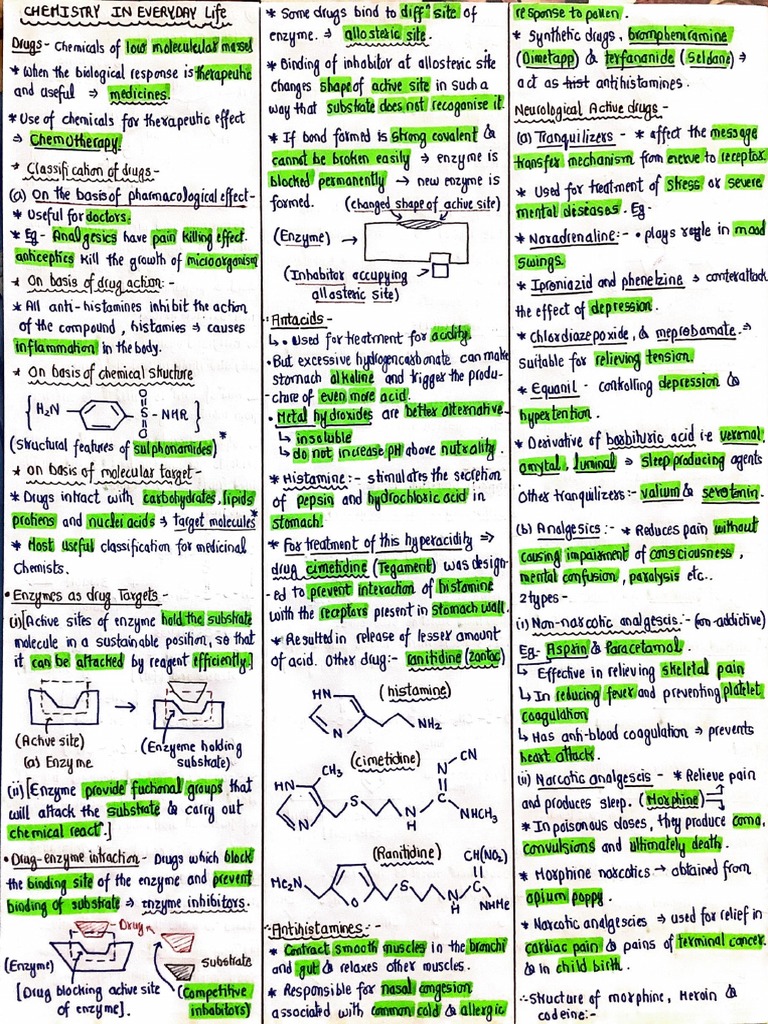 CHEMISTRY IN EVERYDAY Life
Drugs - Chemicals of low molecular masses
* When the biological response is therapeutic
and useful ⇒ medicines.
* Use of chemicals for therapeutic effect
⇒ Chemotherapy.
→ Classification of drugs -
(a) On the basis of pharmacological effect -
* Useful for doctors.
* Eg - Analgesics have pain killing effect.
antiseptics kill the growth of microorganism
* On basis of drug action: -
* All anti-histamines inhibit the action
of the compound, histamies ⇒ causes
inflammation in the body.
* On basis of chemical structure
{ H₂N - S - NHR }
O
O
(Structural features of sulphonamides)*
* on basis of molecular target -
* Drugs intract with carbohydrates, lipids
protiens and nuclei acids → target molecules*
* Most useful classification for medicinal
Chemists.
• Enzymes as drug Targets -
(i) [Active sites of enzyme hold the substrate
molecule in a sustainable position, so that
it can be attacked by reagent efficiently.]
(Active site)
(a) Enzyme
(Enzyeme holding
substrate)
(ii) [Enzyme provide fuctional groups that
will attack the substrate & carry out
chemical reactⁿ.]
• Drug-enzyme intraction - Drugs which block
the binding site of the enzyme and prevent
binding of substrate ⇒ enzyme inhibitors.
Drug
(Enzyme)
Substrate
[Drug blocking active site
of enzyme].
(Competitive
inhabitors)
* Some drugs bind to diffⁿ site of
enzyme. ⇒ allosteric site.
* Binding of inhabitor at allosteric site
changes shape of active site in such a
way that substrate does not recoganise it.
* If bond formed is strong covalent &
cannot be broken easily → enzyme is
blocked permanently → new enzyme is
formed. (changed shape of active site)
(Enzyme) →
(Inhabitor occupying
allosteric site)
Antacids -
↳ • Used for treatment for acidity.
• But excessive hydrogencarbonate can make
stomach alkaline and trigger the produ-
-cture of even more acid.
• Metal hydroxides are better alternative-
↳ insoluble
↳ do not increase pH above nutrality.
* Histamine: - stimulates the secretion
of pepsin and hydrochloric acid in
stomach.
* For treatment of this hyperacidity ⇒
drug cimetidine (Tegament) was design-
-ed to prevent interaction of histamine
with the receptors present in stomach wall.
* Resulted in release of lesser amount
of acid. Other drug:- ranitidine (zantac)
(histamine)
HN
N
NH₂
(cimetidine)
CH₃
CN
HN
N
N
S
N
H
NHCH₃
(Ranitidine)
CH(NO₂)
Me₂N
O
S
N
H
NHMe
Antihistamines: -
* Contract smooth muscles in the bronchi
and gut & relaxes other muscles.
* Responsible for nasal congesion
associated with common cold & allergic
response to pollen.
* Synthetic drugs, brompheniramine
(Dimetapp) & terfananide (Seldane) ⇒
act as hist antihistamines.
Neurological Active drugs -
(a) Tranquilizers - * affect the message
transfer mechanism from nerve to receptor.
* Used for treatment of stress or severe
mental deseases. Eg-
* Noradrenaline: - • plays role in mood
swings.
* Iproniazid and phenelzine → conterattack
the effect of depression.
* Chlordiazepoxide, & meprobamate. ⇒
suitable for relieving tension.
* Equanil - controlling depression &
hypertention.
* Derivative of barbituric acid i.e veronal,
amytal, luminal ⇒ sleep producing agents
Other tranquilizers: - valium & serotonin.
(b) Analgesics: - * Reduces pain without
causing impairment of consciousness,
mental confusion, paralysis etc..
2types -
(i) Non-narcotic analgescis. - (non-addictive)
Eg - Asprin & Paracetamol.
↳ Effective in relieving skeletal pain
↳ In reducing fever and preventing platelet
coagulation
↳ Has anti-blood coagulation ⇒ prevents
heart attack.
(ii) Narcotic analgescis - * Relieve pain
and produces sleep. (Morphine)
* In poisonous doses, they produce coma,
convulsions and ultimately death.
* Morphine narcotics → obtained from
opium poppy.
* Narcotic analgescies → used for relief in
cardiac pain & pains of terminal cancer
& in child birth.
∴ Structure of morphine, Heroin &
codeine: -